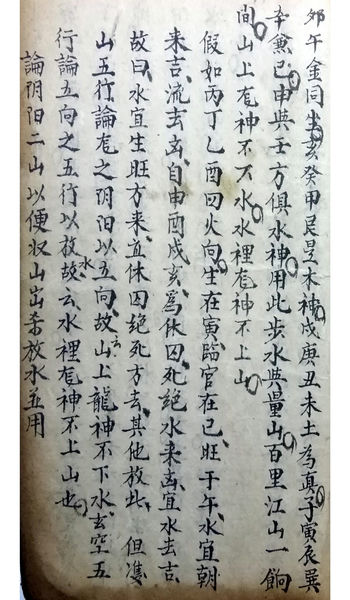 邜午金同坐亥癸甲艮是木神戌庚丑未土為真子寅辰巽
辛兼巳申與壬方俱水神用此步水與量山百里江山一餉
间山上龙神不下水水裡龙神不上山
假如丙丁乙酉四火向生在寅臨官在巳旺于午水宜朝
来吉流去凶自申酉戍亥為休囚死絶水来凶宜水去吉
故曰水宜生旺方来宜休囚絶死方去其他放此但准
山五行論龙之阴阳以立向故云山上龍神不下水玄空五
行論五向之五行以放水故云水裡龙神不上山也
論阴阳二山以便収山出杀放水並用